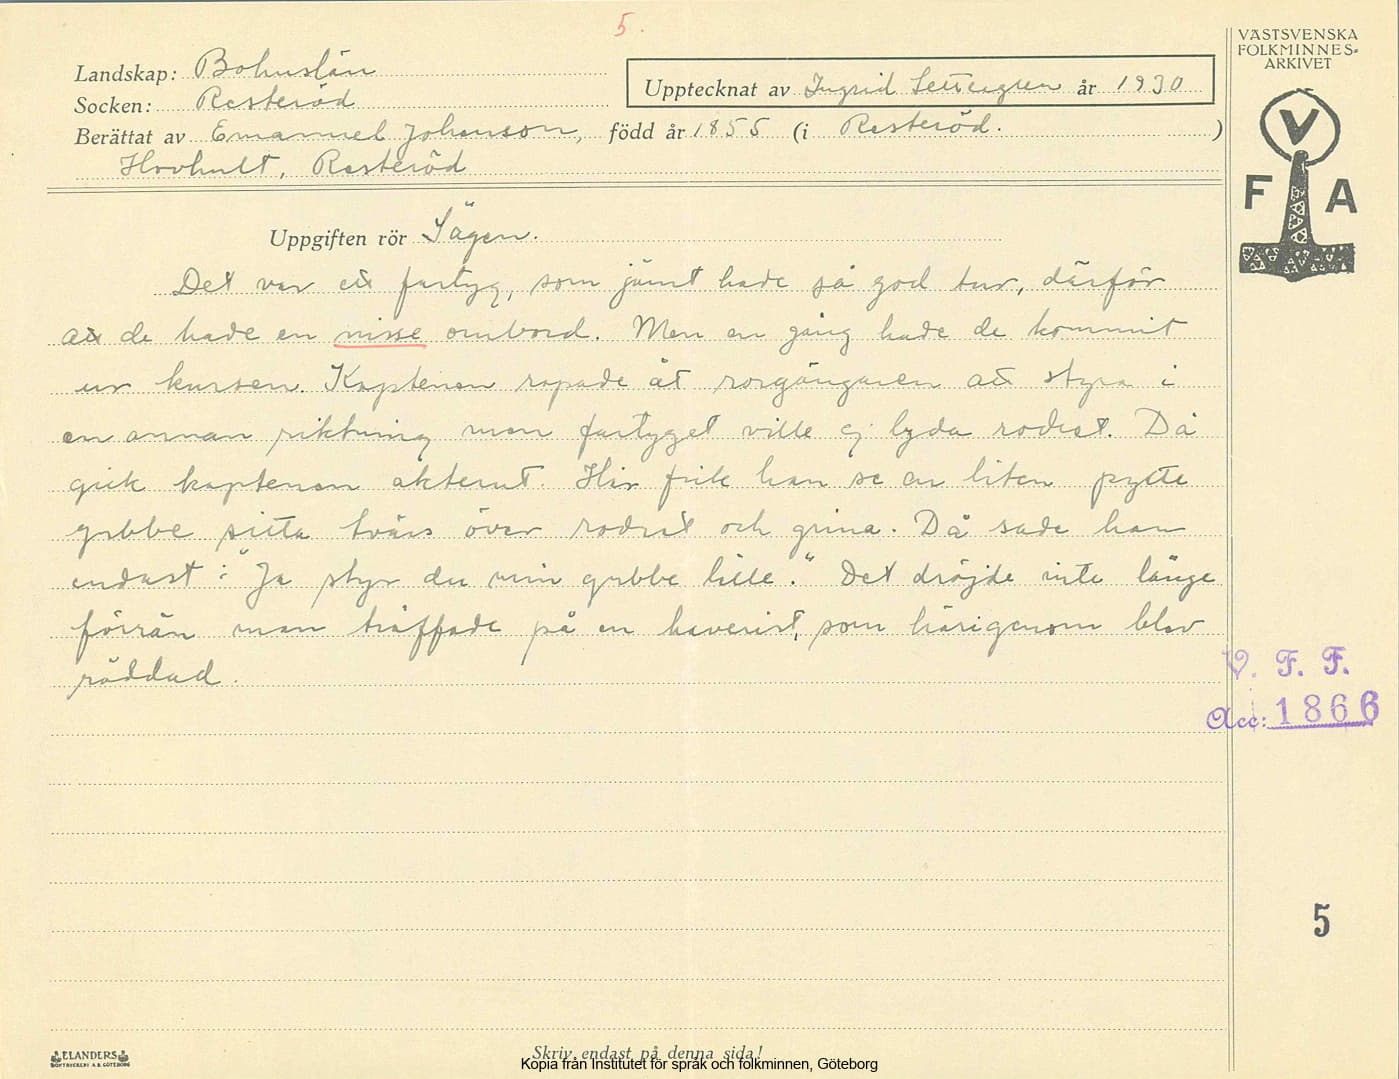 5.
VÄSTSVENSKA
FOLKMINNES-
ARKIVET
Landskap: Bohuslän
Upptecknat av Ingrid Settergren år 1930
Socken: Resteröd
Berättat av Emanuel Johanson, född år 1855 (i Resteröd. )
Hovhult, Resteröd
V
F A
Uppgiften rör Sägen.
Det var ett fartyg, som jämt hade så god tur, därför
att de hade en nisse ombord. Men en gång hade de kommit
ur kursen. Kaptenen ropade åt rorgängaren att styra i
en annan riktning men fartyget ville ej lyda rodret. Då
gick kaptenen akterut. Här fick han se en liten pytte
gubbe sitta tvärs över rodret och grina. Då sade han
endast: "Ja styr du min gubbe lille." Det dröjde inte länge
förrän man träffade på en haverist, som härigenom blev
räddad.
V. F. F.
Acc: 1866
5
ELANDERS
BOKTRYCKERI A.B. GÖTEBORG
Skriv endast på denna sida!
Kopia från Institutet för språk och folkminnen, Göteborg